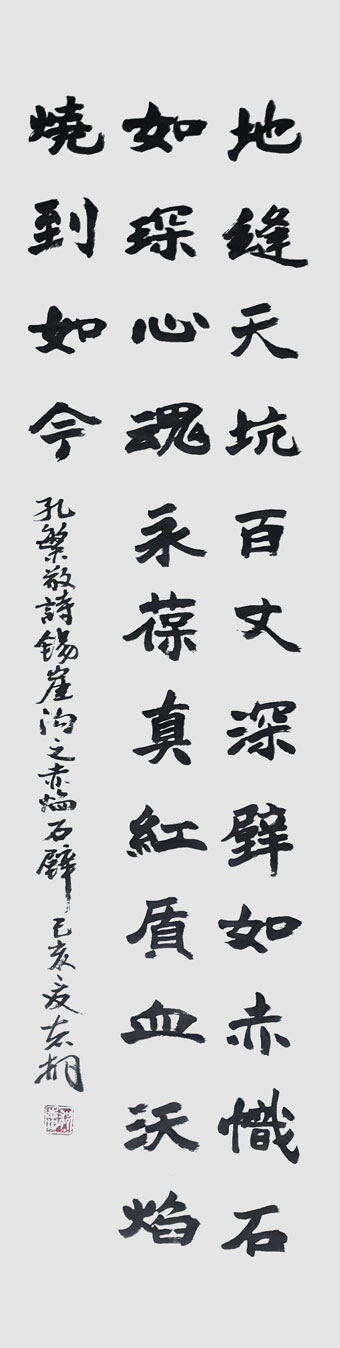 地縫天坑百丈深壁如赤幟石
如琛心魂永葆真紅質血沃焰
燒到如今
孔繁敬詩錫崖沟之赤焰石壁 己亥夏